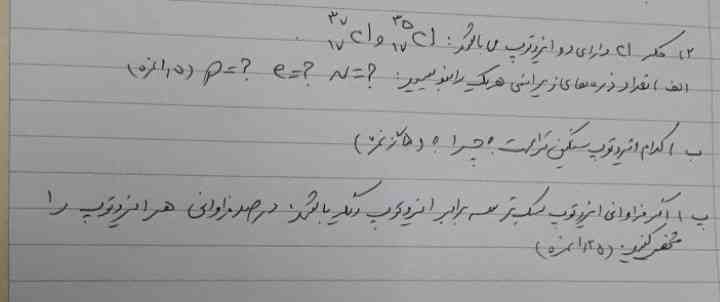 ۲) عنصر Cl دارای دو ایزوتوپ می باشد: ³⁵₁₇Cl و ³⁷₁₇Cl .
الف) تعداد ذره های زیر اتمی هر یک را بنویسید: n=? e=? p=? (۱/۵ نمره)
ب) کدام ایزوتوپ سنگین تر است؟ چرا؟ (۰/۷۵ نمره)
پ) اگر فراوانی ایزوتوپ سبک تر سه برابر ایزوتوپ دیگر باشد. درصد فراوانی هر ایزوتوپ را
مشخص کنید. (۱/۲۵ نمره)